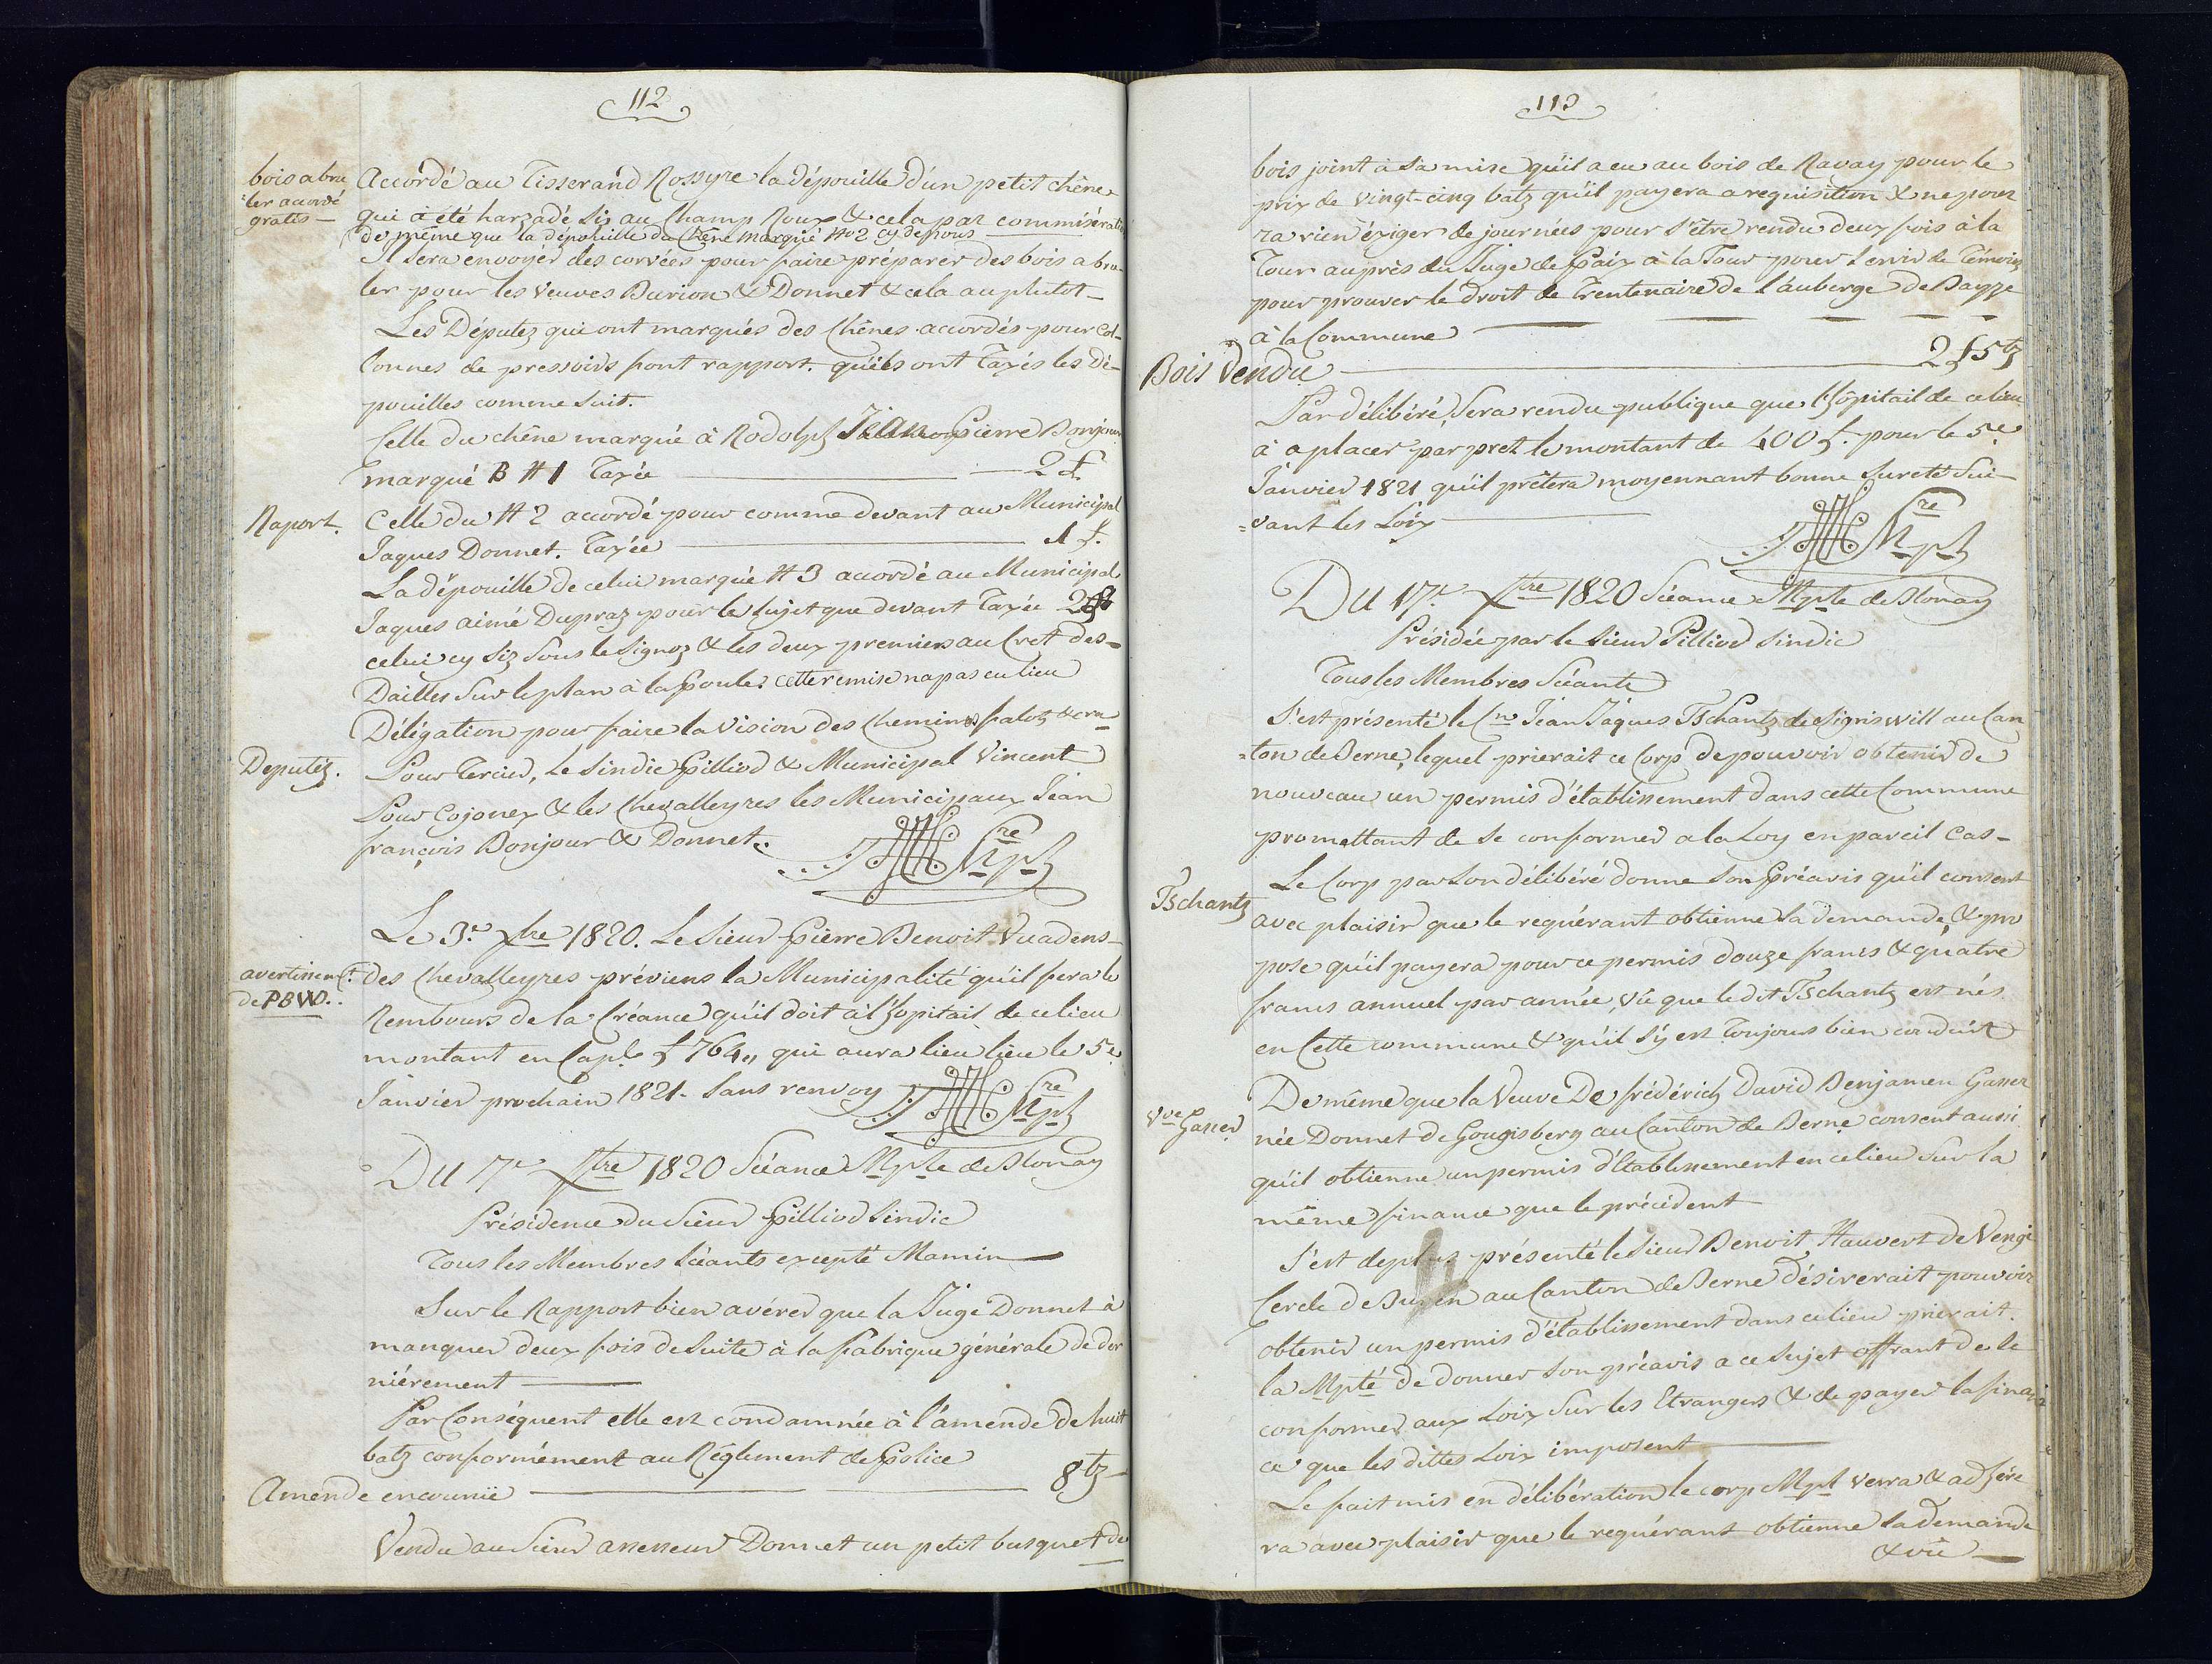 112
bois a bru
ler accordé
gratis —
Accordé au Tisserand Rossyre la dépouille d'un petit chêne
qui à été harzadé sis au Champ Roux & cela par commisération
de même que la dépouille du Chêne marqué N° 2 cy dessous
Il sera envoyér des corvées pour faire préparer des bois a bru-
ler pour les veuves Burion & Donnet & cela au plutot —
Les Députez qui ont marqués des Chênes accordés pour Col-
lonnes de pressoirs font rapport. qu'ils ont Taxés les Dé-
pouilles comme suit.
Celle du chêne marqué à Rodolph Pierre Bonjour
marqué B # 1 Taxée — 2 f.
Raport.
Celle du # 2 accordé pour comme devant au Municipal
Jaques Donnet. Taxée — 1 f.
La dépouille de celui marqué # 3 accordé au Municipal
Jaques aimé Dupraz pour le sujet que devant Taxée 2 f
celui cy siz sous le Signoz & les deux premiers au Cret des-
Dailles sur le plan à la Goule. cette remise na pas eu lieu
Deputéz.
Délégation pour faire la Vision des Chemins falots & cra-
Pour Tercier, Le Sindic Pilliod & Municipal Vincent
Pour Cojonex & les Chevalleyres les Municipaux Jean
françois Bonjour & Donnet.
Sre
Mpl
avertissem.t
de PBVD.
Le 3.e Xbre 1820. Le Sieur Pierre Benoit Vuadens-
des Chevalleyres préviens la Municipalité qu'il fera le
Rembours de la Créance qu'il doit à l'hopitail de ce lieu
montant en Capl. f 764,, qui aura lieu lieu le 5.e
Janvier prochain 1821. Sans renvoy
Sre
Mpl
Du 7.e Xbre 1820 Séance Mple de Blonay
Présidence du Sieur Pilliod Sindic
Tous les Membres Séants excepté Mamin —
Sur le Rapport bien avérer que la Juge Donnet à
manquer deux fois de suite à la fabrique générale de der
nièrement —
Par Conséquent elle est condamnée à l'amende de huit
batz conformément au Réglement de Police
Amende encourüe — 8 bz —
Vendu au Sieur assesseur Donnet un petit busquet de
113
bois joint à sa mise qu'il a eu au bois de Ravay pour le
prix de vingt-cinq batz qu'il payera a requisition & ne pour
ra rien éxiger de journées pour s'être rendu deux fois à la
Tour auprès du Juge de Paix à la Tour pour servir de Témoins
pour prouver le droit de Trentenaire de l'auberge de Bayze
à la Commune —
Bois Vendu — 2 f 5 bz
Par délibéré, Sera rendu publique que l'hôpitail de ce lieu
à a placer par pret le montant de 400 f. pour le 5.e
Janvier 1821 qu'il prêtera moyennant bonne Sureté Sui-
=vant les Loix —
Sre
Mpl
Du 17.e Xbre 1820 Séance Mple de Blonay
Présidée par le Sieur Pilliod Sindic
Tous les Membres Séants
S'est présenté le Cn Jean Jâques Tschantz de Sigriswill au Can
=ton de Berne, lequel prierait ce Corp de pouvoir obtenir de
nouveau un permis d'établissement dans cette Commune
promettant de se conformer a la Loy en pareil cas —
Tschantz
Le Corp par son délibéré donne son Préavis qu'il consent
avec plaisir que le requérant obtienne sa demande, & pro
pose qu'il payera pour ce permis douze francs & quatre
francs annuel par année, vû que le dit Tschantz est nés
en Cette commune & qu'il s'y est Toujours bien conduit
Vve Gasser
De même que la Veuve De frédérich David Benjamen Gasser
née Donnet de Gougisberg au Canton de Berne consent aussi
qu'il obtienne un permis d'établissement en ce lieu sur la
même finance que le précédent
S'est deplus présenté le Sieur Benoit Hauvert de Vengi
Cercle de Buren au Canton de Berne désirerait pouvoir
obtenir un permis d'établissement dans ce lieu prierait.
la Mpté de donner son préavis a ce sujet offrant de se
conformer aux Loix sur les Etrangers & de payer la finan
ce que les dittes Loix imposent —
Le fait mis en délibération le corp Mpl verra & adhére
ra avec plaisir que le requérant obtienne sa demande
& vû —